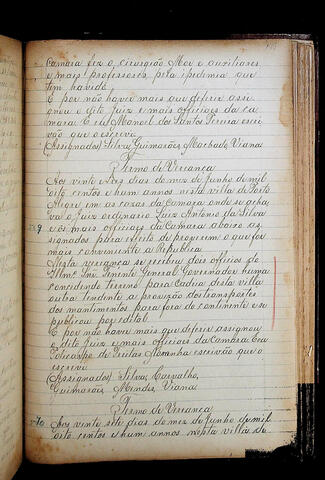 Camara fez o cirurgião Mor e auxiliares
e mais professores pela ipidemia que
tem havido.
E por não haver mais que deferir assi-
gnou o dito Juiz e mais officiaes da ca-
mara. E eu Manoel dos Santos Pereira escri-
vão que o escrevi
(Assignados) Silva, Guimarães, Machado, Viana
Termo de Vereança
Aos vinte tres dias do mez de Junho de mil
oito centos e hum annos nesta villa de Porto
Alegre em as cazas da Camara onde se acha-
va o Juiz ordinario Luiz Antonio da Silva
e os mais officiaes da Camara abaixo as-
signados para efeito de proverem o que for
mais conveniente a Republica
Nesta vereança se recebeu dois officios do
Illmo. Snr. Tenente General Governador huma
concedendo terreno para Cadeia desta villa
outra tendente a proibição dos transportes
dos mantimentos para fora do continente e se
publicou por edital.
E por não haver mais que deferir assignou
o dito Juiz e mais officiaes da Camara. E eu
de Freitas Noronha escrivão que o
escrevi
(Assignados) Silva, Carvalho,
Guimarães, Mendes, Viana
Termo de Vereança
Aos vinte sete dias do mez de Junho de mil
oito centos e hum annos nesta villa de